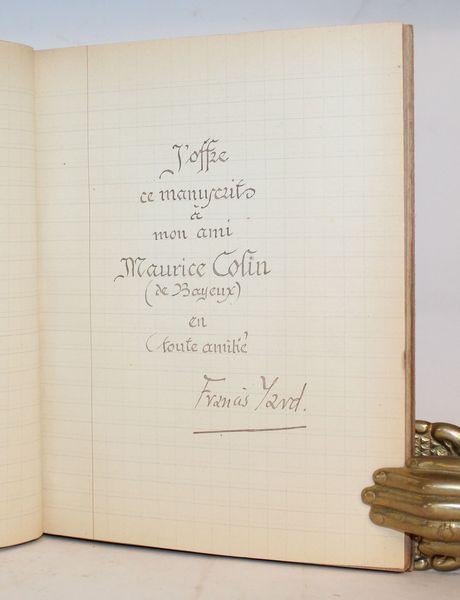 J'offre
ce manuscrit
à
mon ami
Maurice Colin
(de Bayeux)
en
toute amitié
Francis Yard.